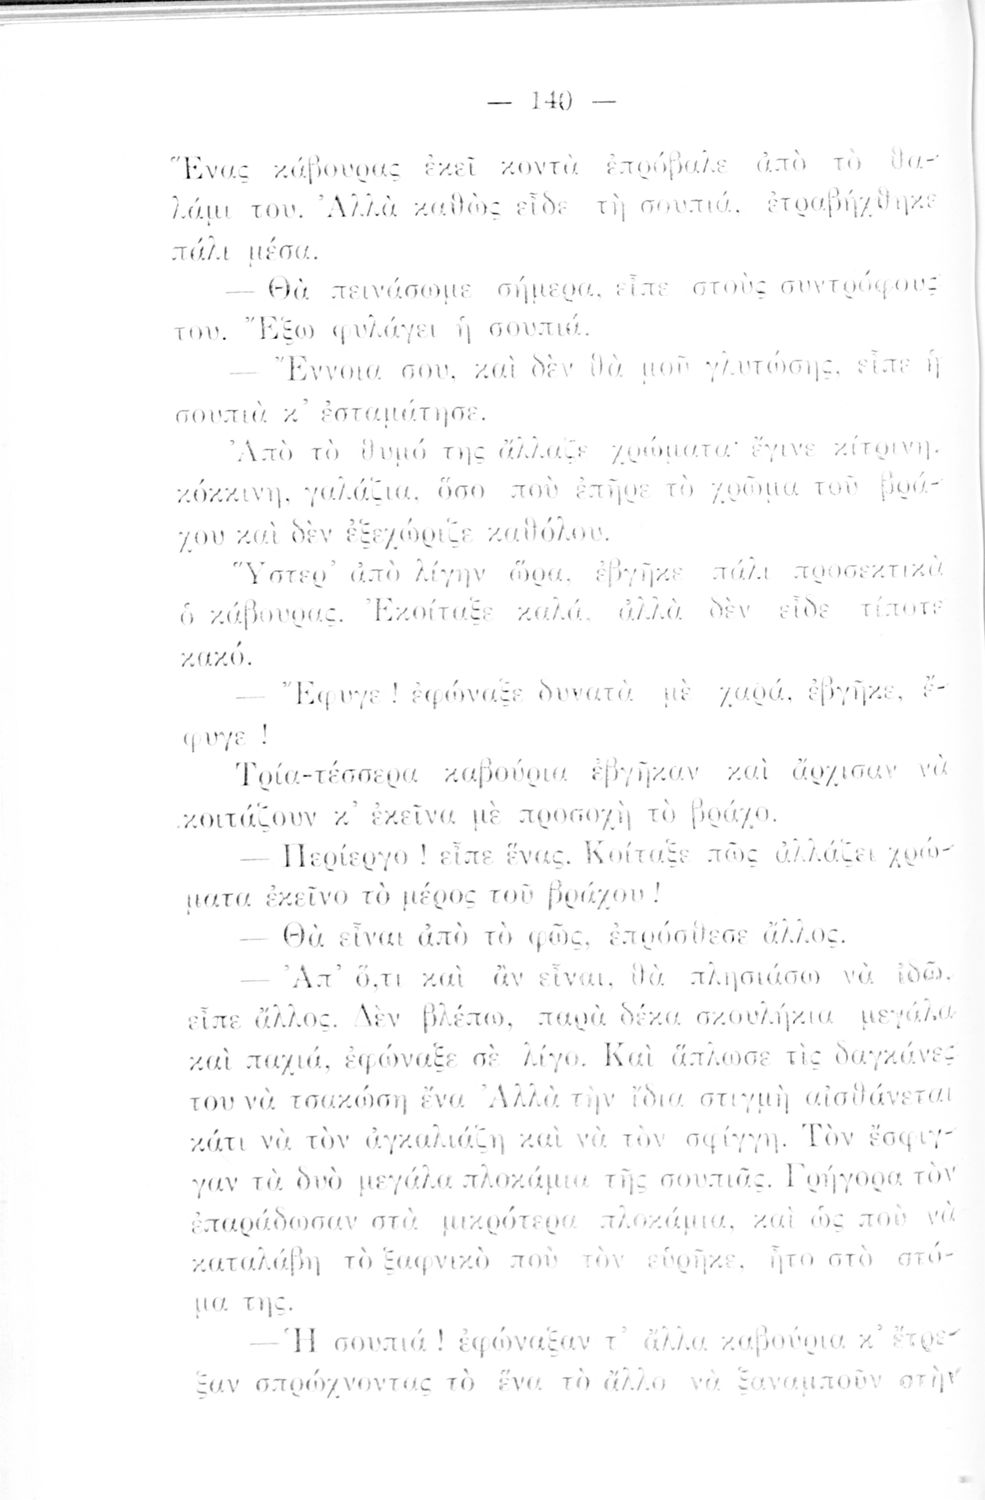 — 140 —
Ἕνας κάβουρας ἐκεῖ κοντὰ ἐπρόβαλε ἀπὸ τὸ θα-
λάμι του. Ἀλλὰ καθὼς εἶδε τὴ σουπιά, ἐτραβήχθηκε
πάλι μέσα.
— Θὰ πεινάσωμε σήμερα, εἶπε στοὺς συντρόφους
του. Ἔξω φυλάγει ἡ σουπιά.
— Ἔννοια σου, καὶ δὲν θὰ μοῦ γλυτώσης, εἶπε ἡ
σουπιὰ κ’ ἐσταμάτησε.
Ἀπὸ τὸ θυμό της ἄλλαζε χρώματα· ἔγινε κίτρινη,
κόκκινη, γαλάζια, ὅσο ποὺ ἐπῆρε τὸ χρῶμα τοῦ βρά-
χου καὶ δὲν ἐξεχώριζε καθόλου.
Ὕστερ’ ἀπὸ λίγην ὥρα, ἐβγῆκε πάλι προσεκτικὰ
ὁ κάβουρας. Ἐκοίταξε καλά, ἀλλὰ δὲν εἶδε τίποτε
κακό.
— Ἔφυγε ! ἐφώναξε δυνατὰ μὲ χαρά, ἐβγῆκε, ἔ-
φυγε !
Τρία-τέσσερα καβούρια ἐβγῆκαν καὶ ἄρχισαν νὰ
κοιτάζουν κ’ ἐκεῖνα μὲ προσοχὴ τὸ βράχο.
— Περίεργο ! εἶπε ἕνας. Κοίταξε πῶς ἀλλάζει χρώ-
ματα ἐκεῖνο τὸ μέρος τοῦ βράχου !
— Θὰ εἶναι ἀπὸ τὸ φῶς, ἐπρόσθεσε ἄλλος.
— Ἀπ’ ὅ,τι καὶ ἂν εἶναι, θὰ πλησιάσω νὰ ἰδῶ,
εἶπε ἄλλος. Δὲν βλέπω, παρὰ δέκα σκουλήκια μεγάλα
καὶ παχιά, ἐφώναξε σὲ λίγο. Καὶ ἅπλωσε τὶς δαγκάνες
του νὰ τσακώση ἕνα Ἀλλὰ τὴν ἴδια στιγμὴ αἰσθάνεται
κάτι νὰ τὸν ἀγκαλιάζη καὶ νὰ τὸν σφίγγη. Τὸν ἔσφιγ-
γαν τὰ δυὸ μεγάλα πλοκάμια τῆς σουπιᾶς. Γρήγορα τὸν
ἐπαράδωσαν στὰ μικρότερα πλοκάμια, καὶ ὡς ποὺ νὰ
καταλάβη τὸ ξαφνικὸ ποὺ τὸν εὑρῆκε, ἦτο στὸ στό-
μα της.
— Ἡ σουπιά ! ἐφώναξαν τ’ ἄλλα καβούρια κ’ ἔτρε-
ξαν σπρώχνοντας τὸ ἕνα τὸ ἄλλο νὰ ξαναμποῦν στὴν